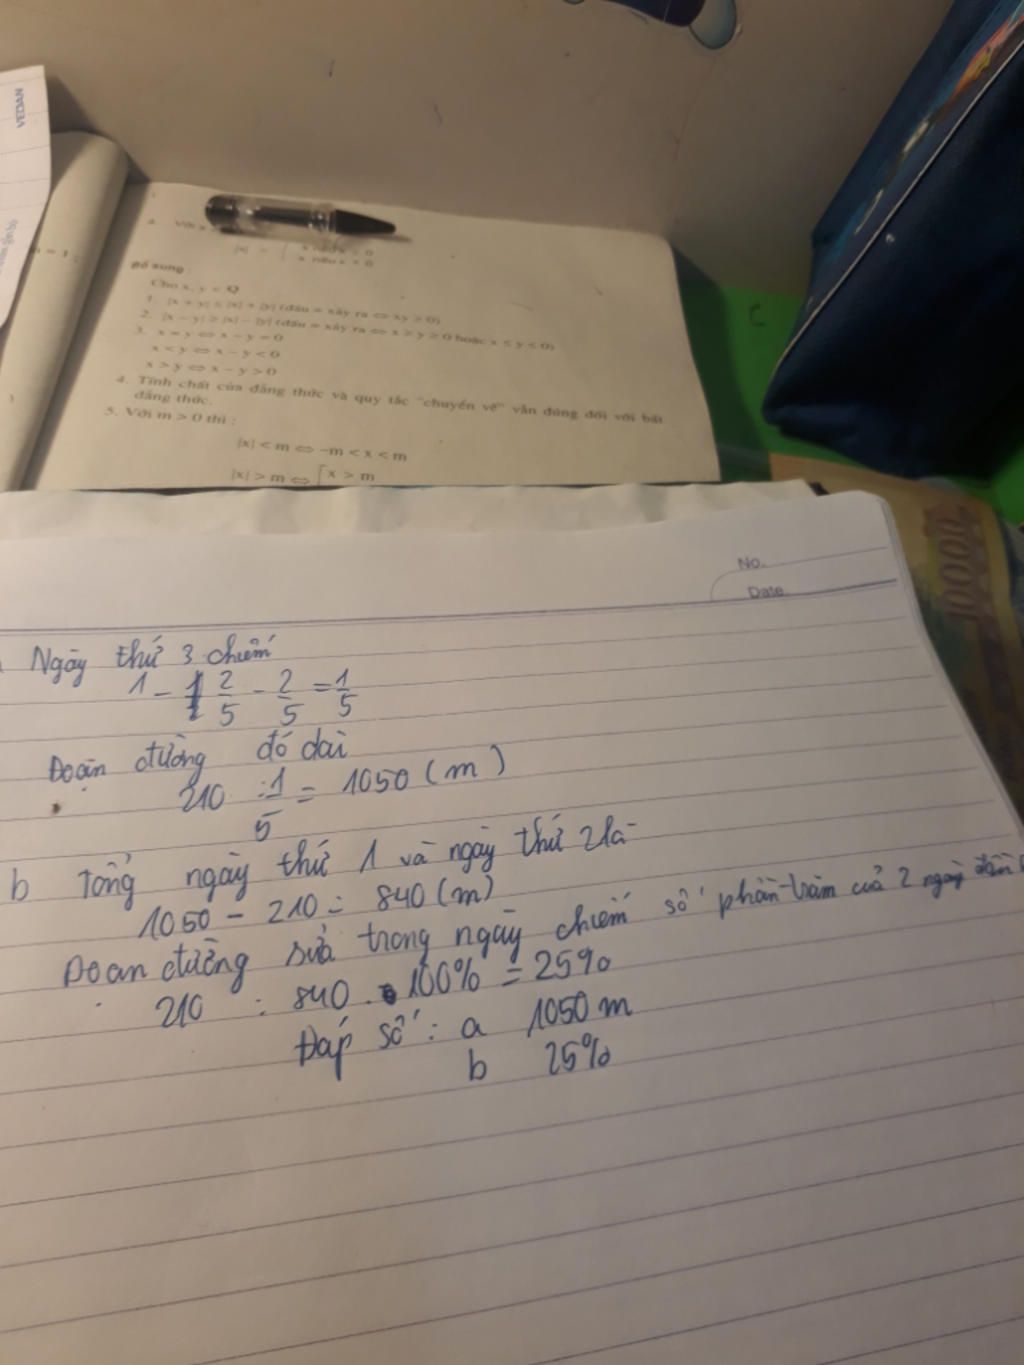 VEDAN
4. Với x
|x| = { x nếu x ≥ 0
x nếu x < 0
Bổ sung :
Cho x, y ∈ Q
1. |x + y| ≤ |x| + |y| (dấu = xảy ra ⇔ xy ≥ 0)
2. |x − y| ≥ |x| − |y| (dấu = xảy ra ⇔ x ≥ y ≥ 0 hoặc x ≤ y ≤ 0)
3. x = y ⇔ x − y = 0
x < y ⇔ x − y < 0
x > y ⇔ x − y > 0
4. Tính chất của đẳng thức và quy tắc "chuyển vế" vẫn đúng đối với bất
đẳng thức.
5. Với m > 0 thì :
|x| < m ⇔ −m < x < m
|x| > m ⇔ [ x > m
10000
No.
Date
Ngày thứ 3 chiếm
1 - 2/5 - 2/5 = 1/5
Đoạn đường đó dài
210 : 1/5 = 1050 (m)
b Tổng ngày thứ 1 và ngày thứ 2 là
1050 - 210 = 840 (m)
Đoạn đường sửa trong ngày chiếm số phần trăm củả 2 ngày đầu
210 : 840 . 100% = 25%
Đáp số : a 1050 m
b 25%